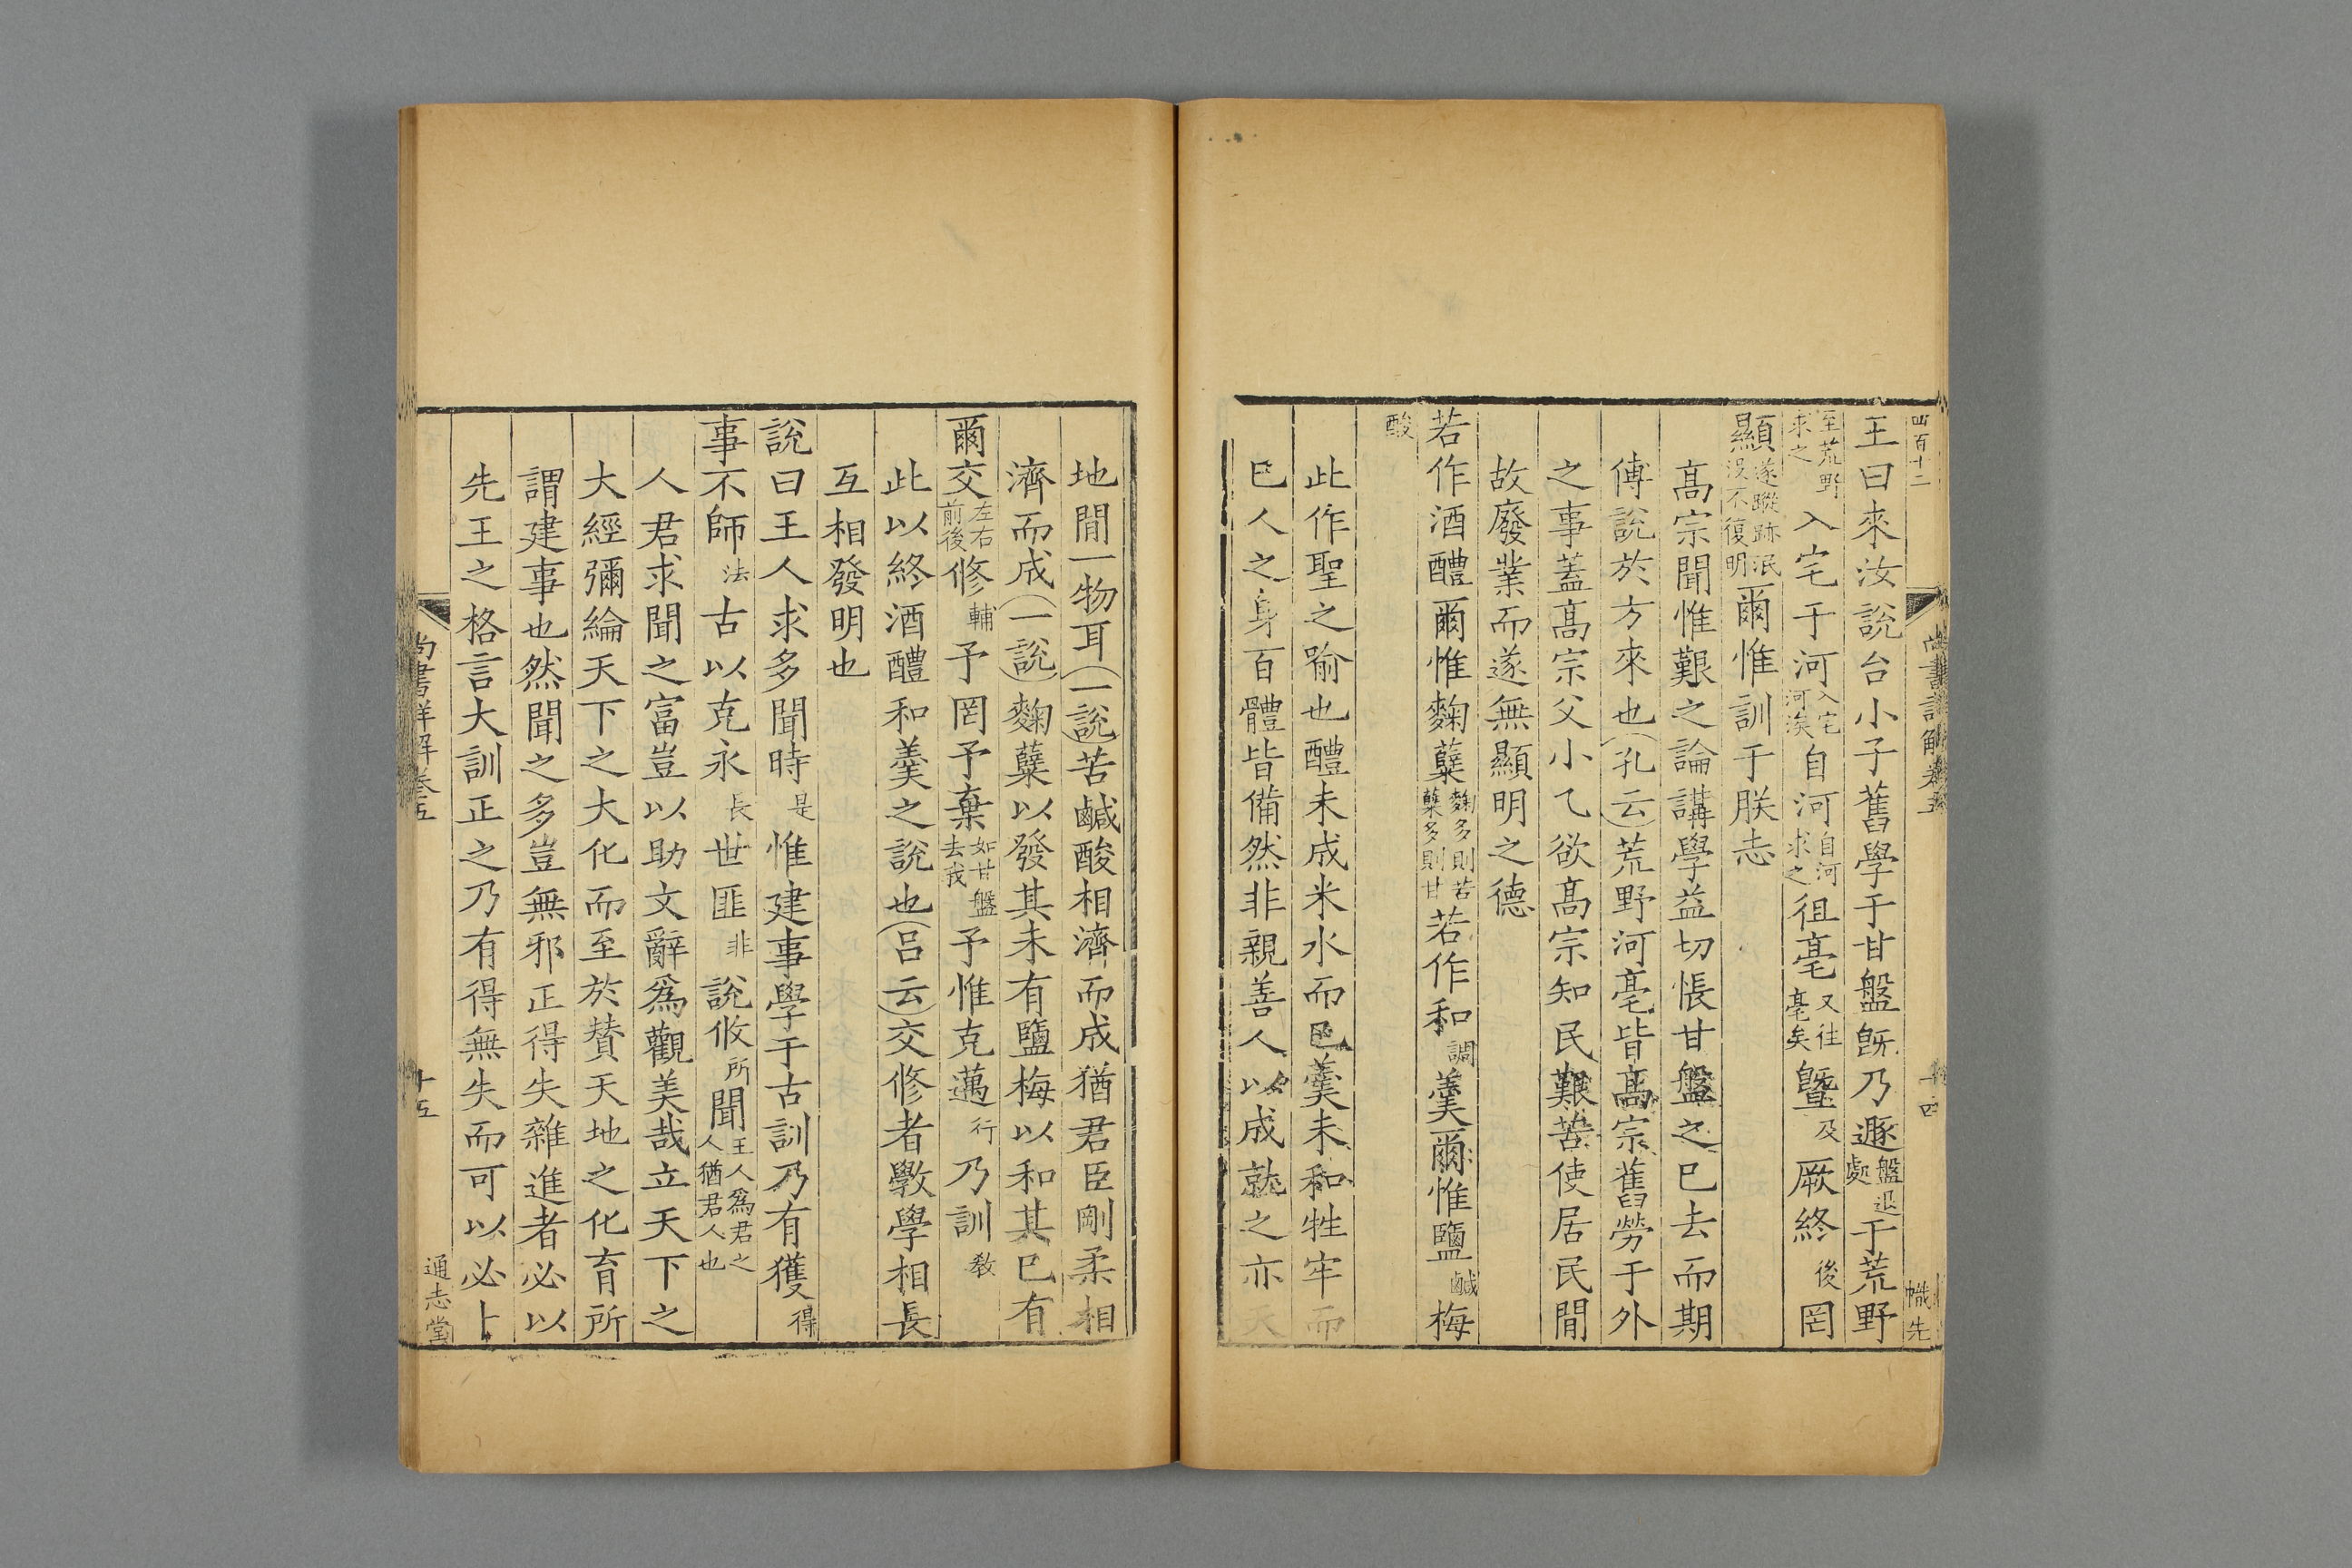 四百十二
尚書詳解卷五
十四
先
王曰來汝說台小子舊學于甘盤旣乃遯盤退處于荒野
至荒野求之入宅于河入宅河涘自河自河求之徂亳又往亳矣曁及厥終後罔
顯遂蹤跡泯没不復明爾惟訓于朕志
高宗聞惟艱之論講學益切悵甘盤之巳去而期
傅說於方來也孔云荒野河亳皆高宗舊勞于外
之事蓋高宗父小乙欲高宗知民艱苦使居民閒
故廢業而遂無顯明之德
若作酒醴爾惟麴糵麴多則苦糵多則甘若作和調羹爾惟鹽鹹梅
酸
此作聖之喻也醴未成米水而巳羹未和牲牢而
巳人之身百體皆備然非親善人以成就之亦天
地閒一物耳一說苦鹹酸相濟而成猶君臣剛柔相
濟而成一說麴糵以發其未有鹽梅以和其巳有
爾交左右前後修輔予罔予棄如甘盤去我予惟克邁行乃訓敎
此以終酒醴和羹之說也呂云交修者斆學相長
互相發明也
說曰王人求多聞時是惟建事學于古訓乃有獲得
事不師法古以克永長世匪非說攸所聞王人爲君之人猶君人也
人君求聞之富豈以助文辭爲觀美哉立天下之
大經彌綸天下之大化而至於贊天地之化育所
謂建事也然聞之多豈無邪正得失雜進者必以
先王之格言大訓正之乃有得無失而可以必上
尚書詳解卷五
十五
通志堂